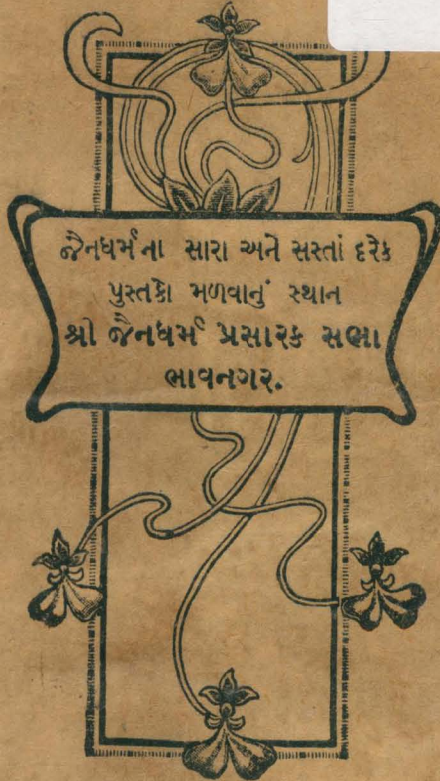 જૈનધર્મના સારા અને સસ્તાં દરેક
પુસ્તકો મળવાનું સ્થાન
શ્રી જૈનધર્મ પ્રસારક સભા
ભાવનગર.